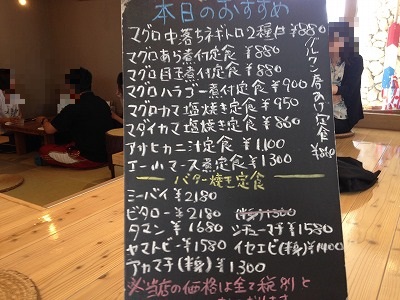 本日のおすすめ
マグロ中落ちネギトロ2種丼¥880
マグロあら煮付定食¥880
マグロ目玉煮付定食¥880
マグロハラゴー煮付定食¥900
マグロカマ塩焼き定食¥950
マダイカマ塩焼き定食¥860
アサヒカニ汁定食¥1,100
エーグ マース煮定食¥1300
グルクン唐あげ定食¥860
バター焼き定食
ミーバイ¥2180
ビタロー¥2180
タマン¥1680 シチューマチ¥1580
ヤマトビー¥1580 イセエビ(半身)¥1400
アカマチ(半身)¥1300
※当店の価格は全て税別と